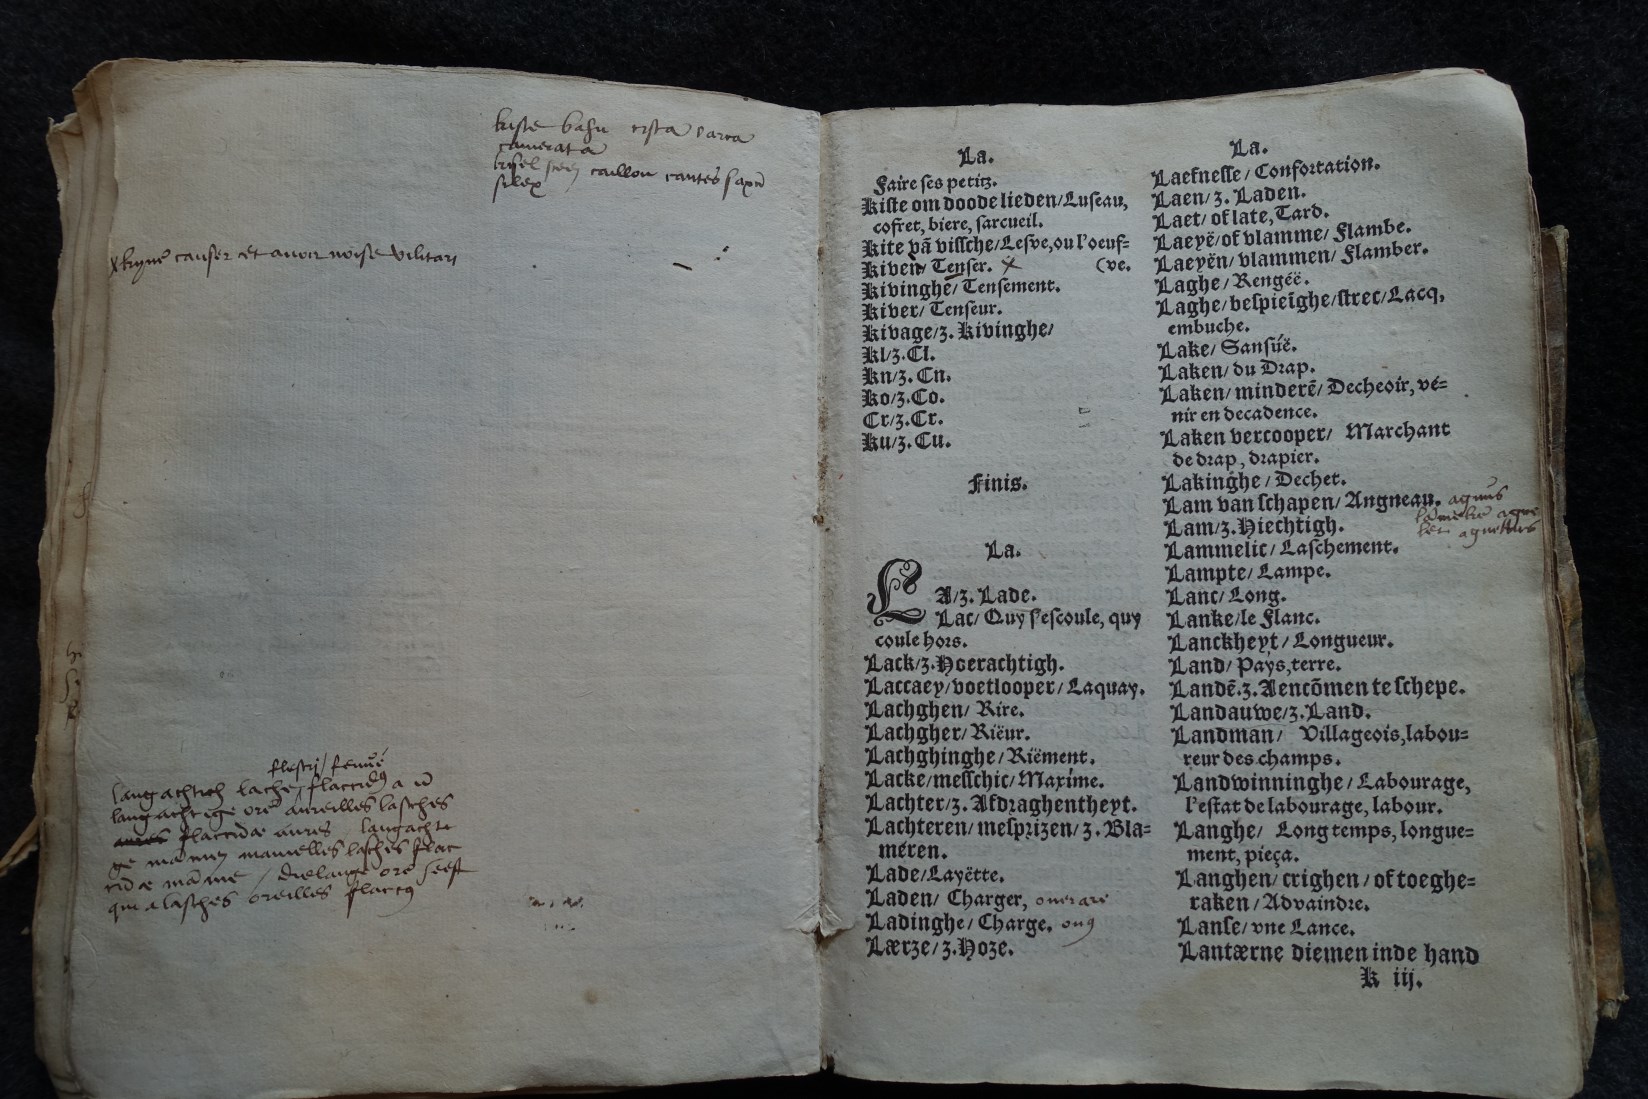 kiste bahu cista arca
camerata
caillou cautes saxū
silex
causer et avoir noise
flestri / fenné
langachtich lache / flaccidus a ū
langachtige orē aureilles lasches
flaccidæ aures langachti
ge mamen mamelles lasches flac
cidæ mamme / die lange orē heeft
qui a lasches oreilles flaccus
La.
Faire ses petitz.
Kiste om doode lieden/Luseau,
cofret, biere, sarcueil.
Kite vā vissche/Lesve, ou l'oeuf=
Kiven/ Tenser. (ve.
Kivinghē/ Tensement.
Kiver/ Tenseur.
Kivage/z. Kivinghe/
Kl/z.Cl.
Kn/z.Cn.
Ko/z.Co.
Cr/z.Cr.
Ku/z.Cu.
Finis.
La.
LA/z. Lade.
Lac/ Quy s'escoule, quy
coule hors.
Lack/z.Hoerachtigh.
Laccaey/voetlooper/Laquay.
Lachghen/ Rire.
Lachgher/ Riëur.
Lachghinghe/Riëment.
Lacke/messchic/Maxime.
Lachter/z. Afdraghentheyt.
Lachteren/mesprizen/z. Bla=
meren.
Lade/Layëtte.
Laden/ Charger, onerare
Ladinghe/ Charge. onus
Lærze/z.Hoze.
La.
Laefnesse/ Confortation.
Laen/z. Laden.
Laet/ of late, Tard.
Laeyë/of vlamme/ Flambe.
Laeyën/vlammen/ Flamber.
Laghe/ Rengéë.
Laghe/bespieïghe/strec/Lacq,
embuche.
Lake/ Sansúë.
Laken/ du Drap.
Laken/minderē/ Decheoir, vé=
nir en decadence.
Laken vercooper/ Marchant
de drap, drapier.
Lakinghe/ Dechet.
Lam van schapen/ Angneau. agnus
Lam/z.Hiechtigh.
Lammelic/Laschement.
Lampte/Lampe.
Lanc/Long.
Lanke/le Flanc.
Lanckheyt/ Longueur.
Land/ Pays, terre.
Landē.z. Aencōmen te schepe.
Landauwe/z.Land.
Landman/ Villageois, labou=
reur des champs.
Landwinninghe/Labourage,
l'estat de labourage, labour.
Langhe/ Long temps, longue=
ment, pieça.
Langhen/crighen/ of toeghe=
raken/Advaindre.
Lanse/vne Lance.
Lantærne diemen inde hand
K iij.